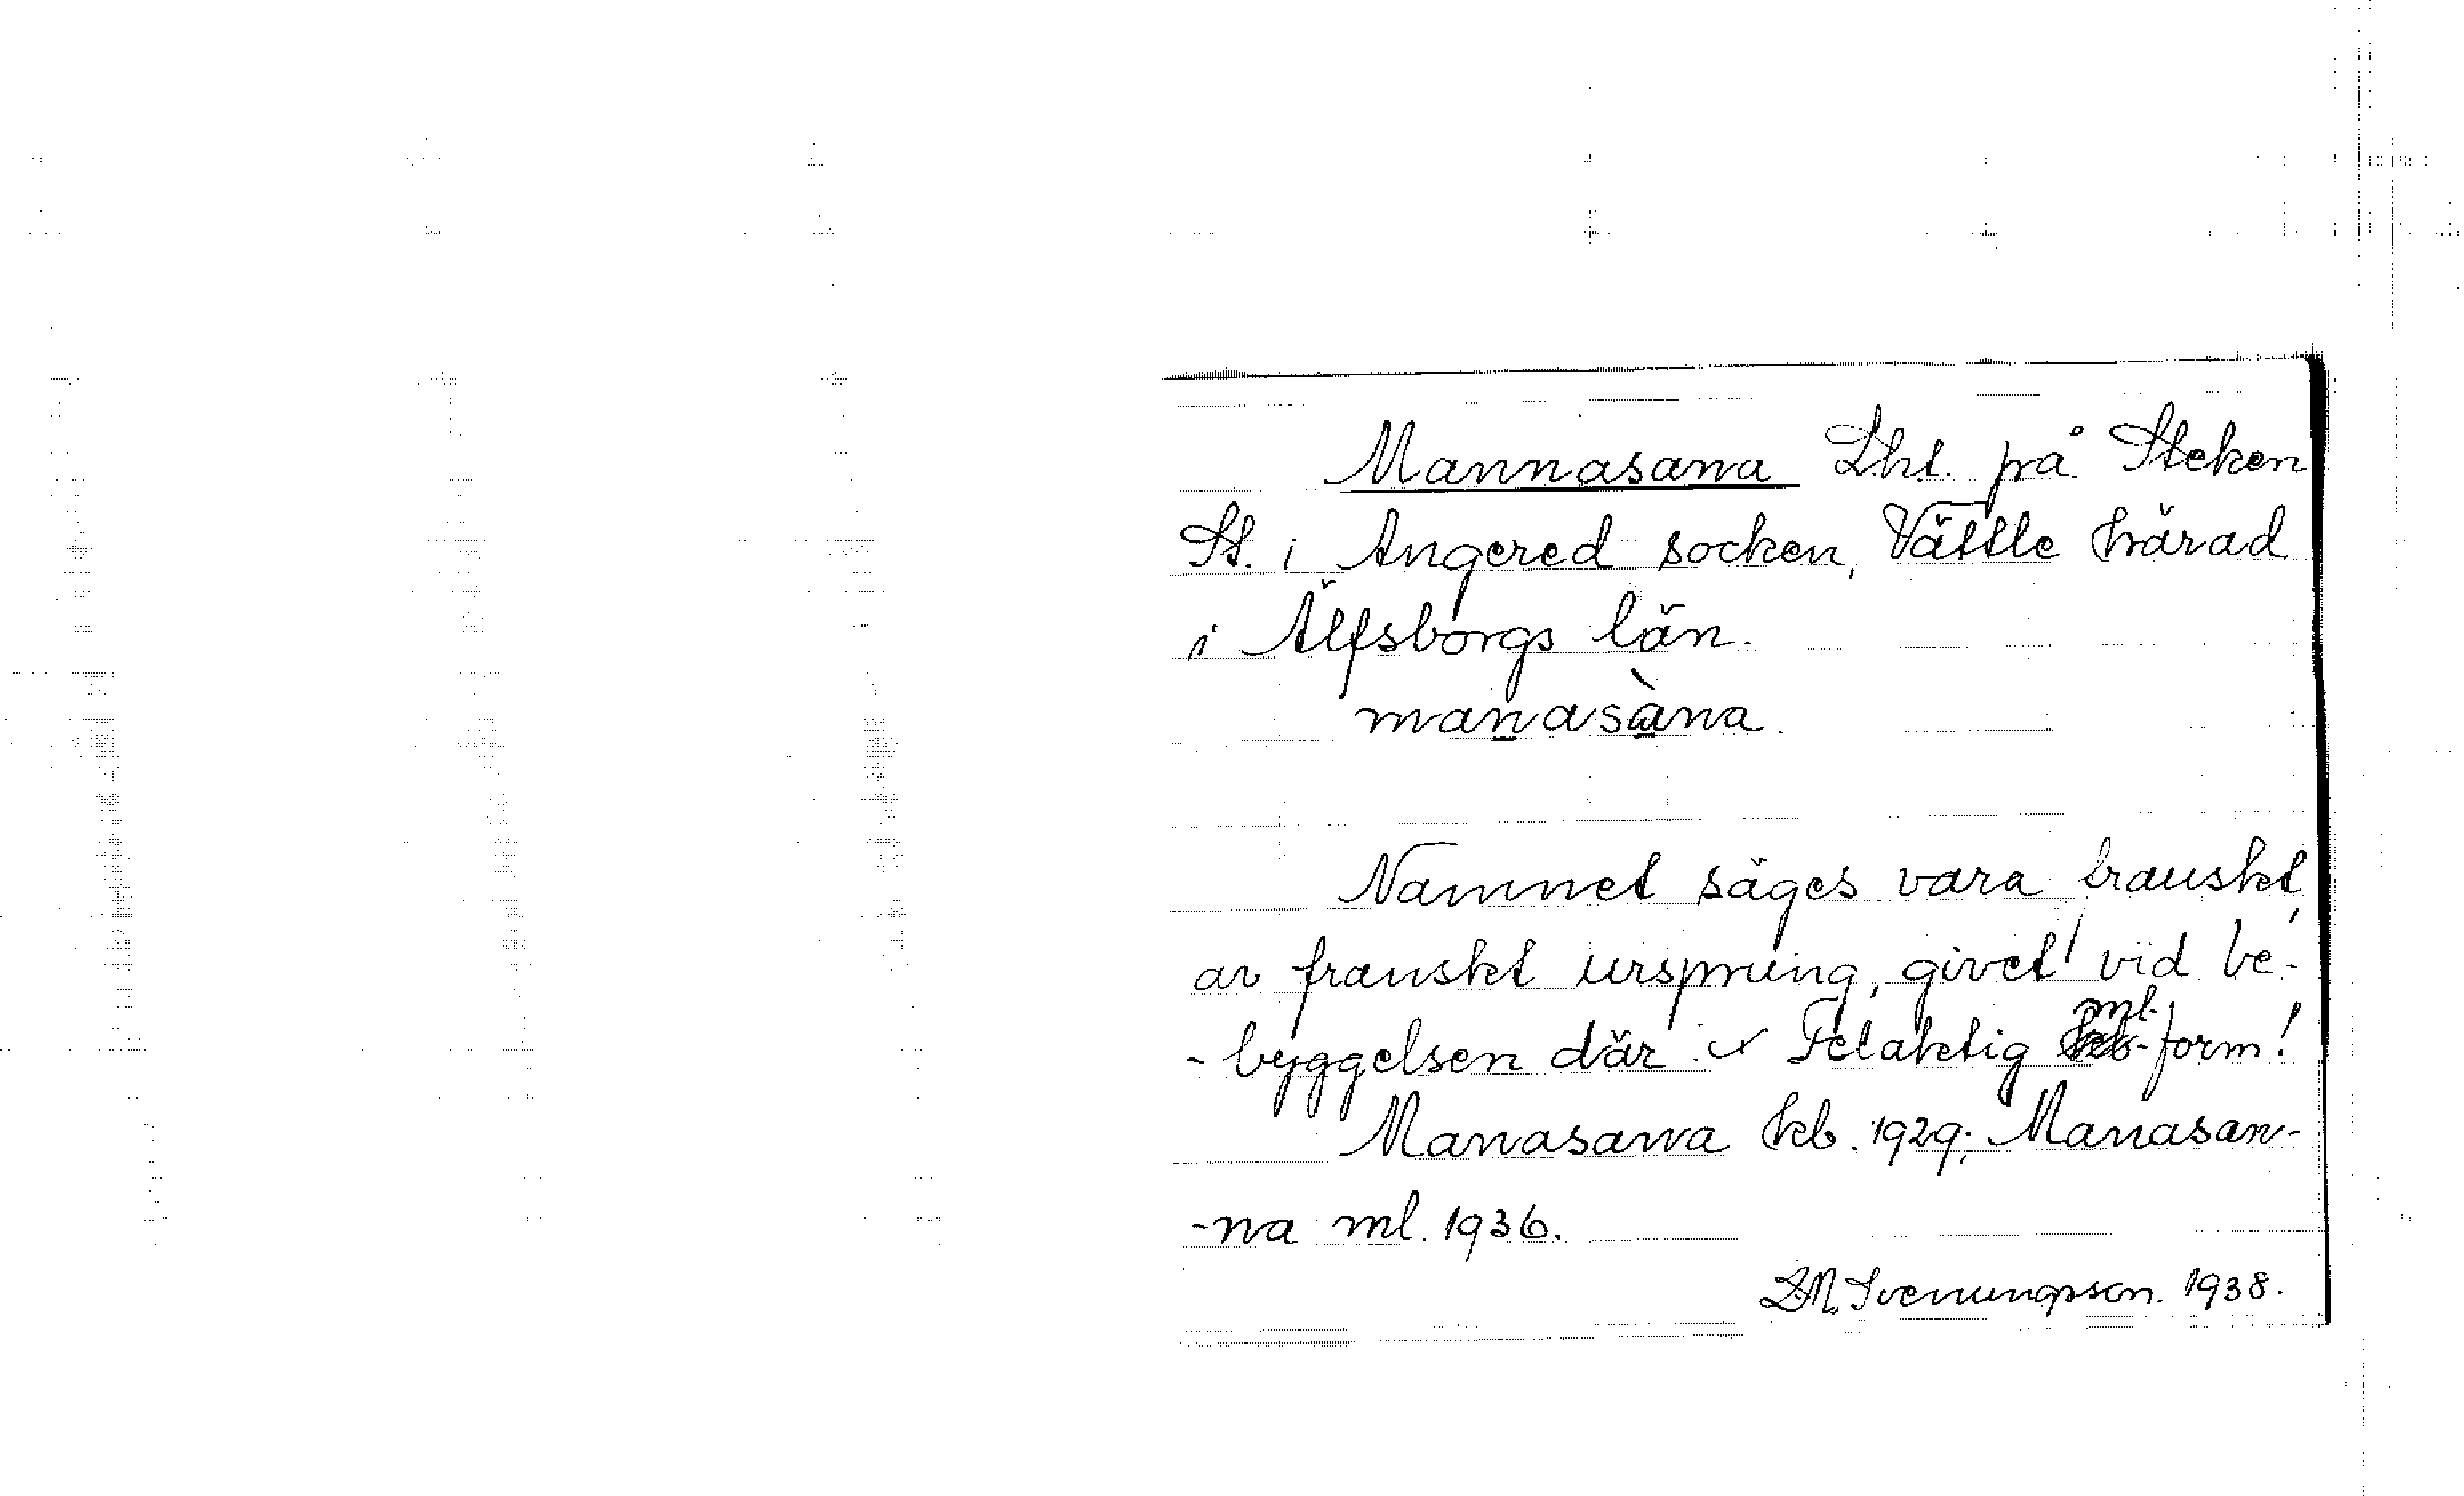 Mannasana Lht. på Steken
St. i Angered socken, Vättle härad
i Älfsborgs län.
manasàna.
Namnet säges vara franskt,
av franskt ursprung, givet vid be-
-byggelsen där. Felaktig ml-form!
Manasana kb. 1929; Manasan-
-na ml. 1936.
Svenungsson. 1938.